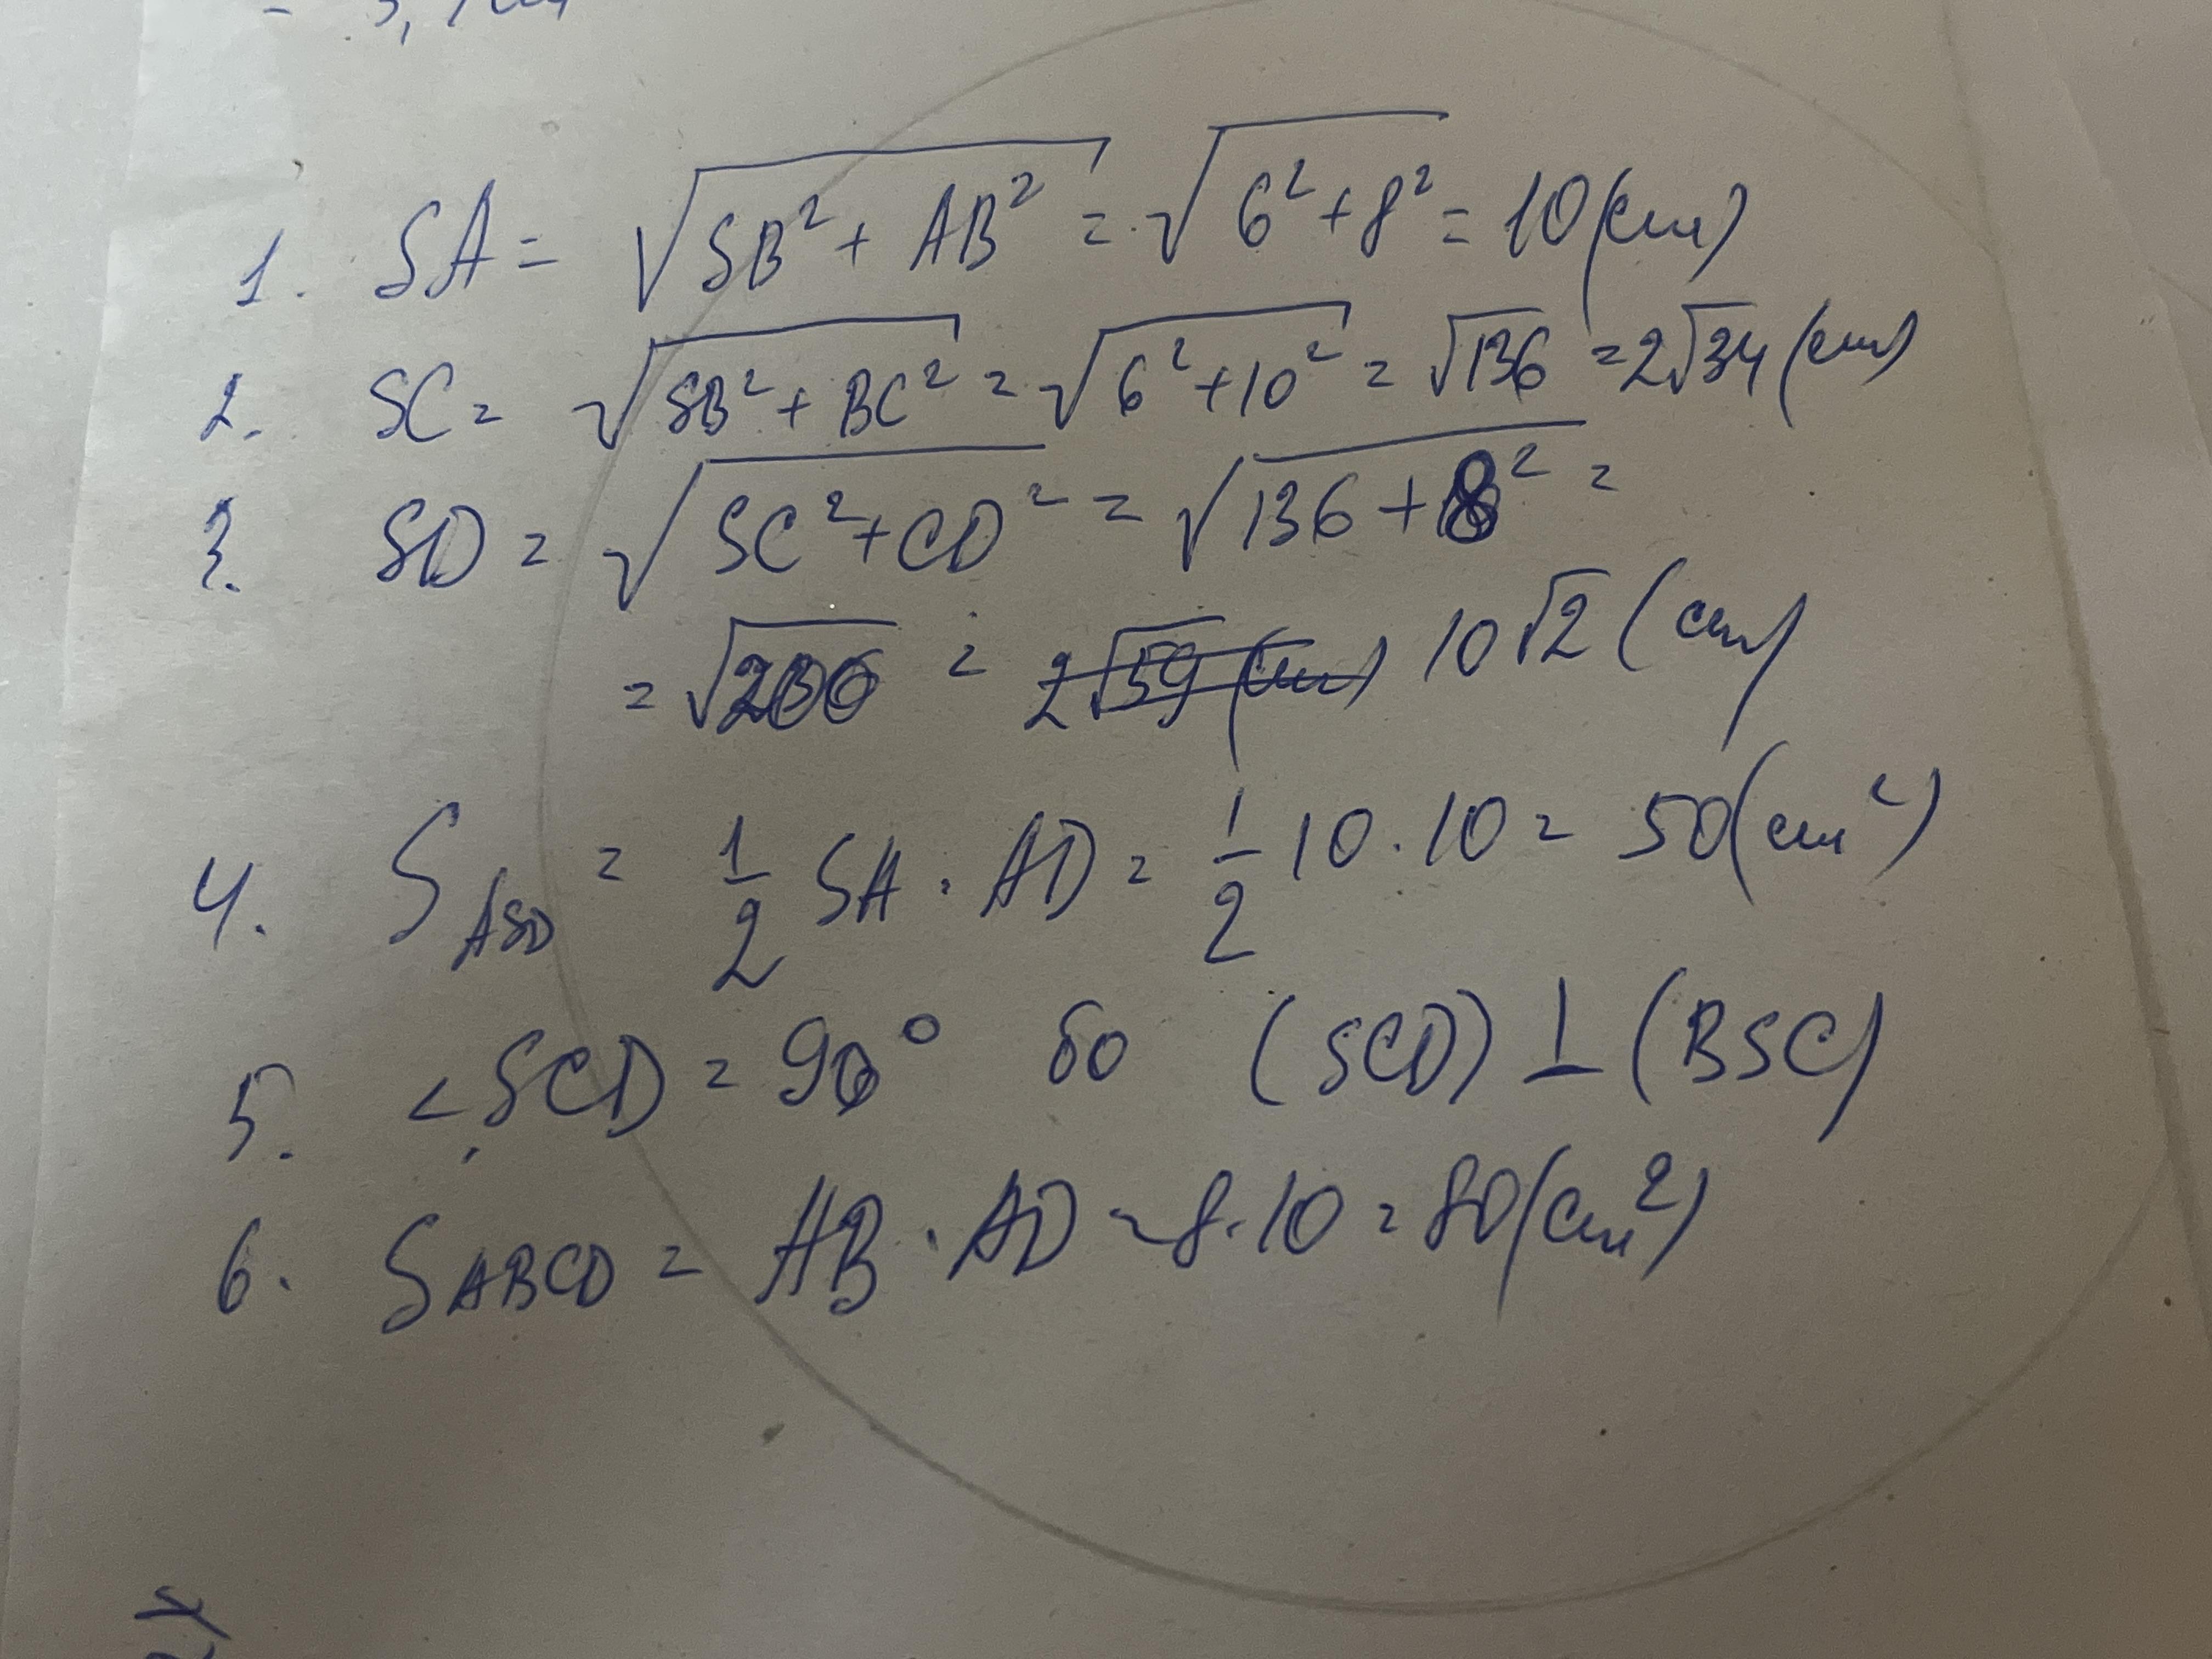 1. SA = √SB² + AB² = √6² + 8² = 10 (см)
2. SC = √SB² + BC² = √6² + 10² = √136 = 2√34 (см)
3. SD = √SC² + CD² = √136 + 8² =
= √200 = 2√59 (см) 10√2 (см)
4. S ASD = 1/2 SA · AD = 1/2 10 · 10 = 50 (см²)
5. <SCD = 90° бо (SCD) ⊥ (BSC)
6. S ABCD = AB · AD = 8 · 10 = 80 (см²)